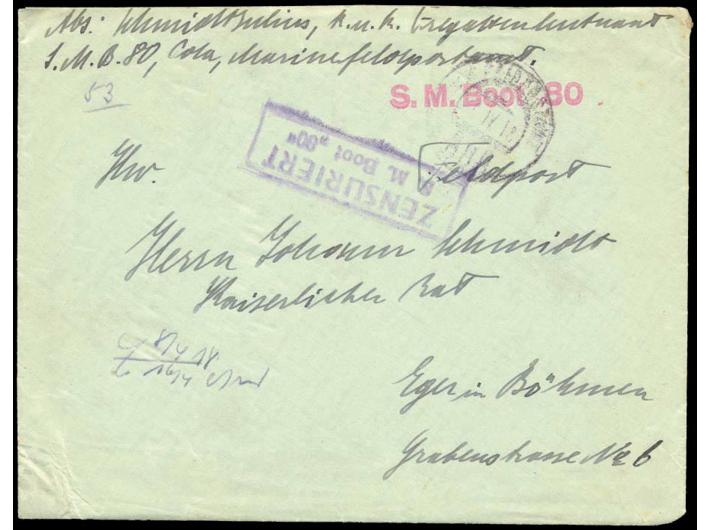 Abs: Schmidt Julius, k.u.k. Fregattenleutnant
S.M.B. 80, Cola, Marinefeldpostamt.
53
S. M. Boot 80
ZENSURIERT
S. M. Boot „80“
Feldpost
Hw.
Herrn Johann Schmidt
Kaiserlicher Rat
8/4 18
16/4
Eger in Böhmen
Grabenstrasse No 6